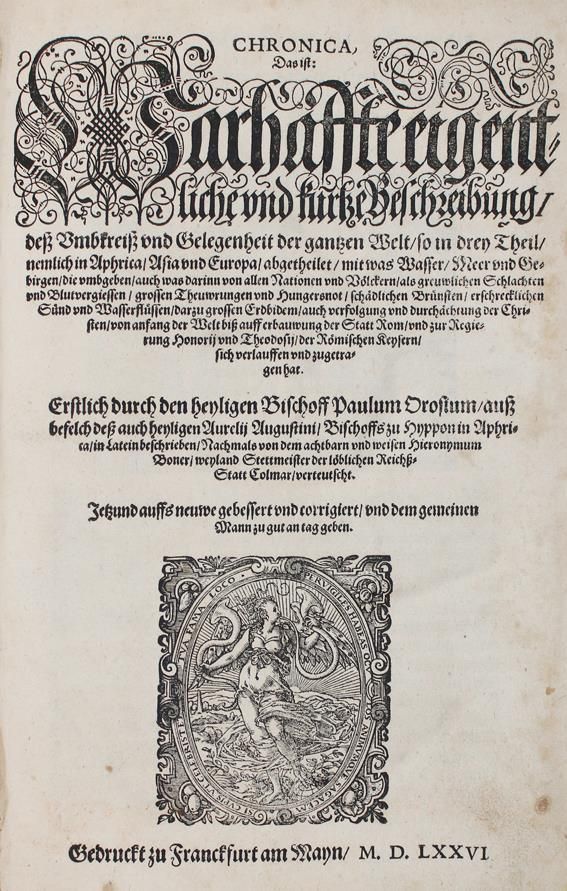 CHRONICA,
Das ist:
Warhaffte eigent-
liche vnd kurtze Beschreibung/
deß Vmbkreiß vnd Gelegenheit der gantzen Welt/ so in drey Theil/
nemlich in Aphrica/ Asia vnd Europa/ abgetheilet/ mit was Wasser/ Meer vnd Ge-
birgen/ die vmbgeben/ auch was darinn von allen Nationen vnd Völckern/ als grewlichen Schlachten
vnd Blutvergiessen/ grossen Theuwrungen vnd Hungersnot/ schädlichen Brünsten/ erschrecklichen
Sünd vnd Wasserflüssen/ darzu grossen Erdbidem/ auch verfolgung vnd durchächtung der Chri-
sten/ von anfang der Welt biß auff erbauwung der Statt Rom/ vnd zur Regie-
rung Honorij vnd Theodosij/ der Römischen Keysern/
sich verlauffen vnd zugetra-
gen hat.
Erstlich durch den heyligen Bischoff Paulum Orosium/ auß
befelch deß auch heyligen Aurelij Augustini/ Bischoffs zu Hyppon in Aphri-
ca/ in Latein beschrieben/ Nachmals von dem achtbarn vnd weisen Hieronymum
Boner/ weyland Stettmeister der löblichen Reichß-
Statt Colmar/ verteutscht.
Jetzund auffs neuwe gebessert vnd corrigiert/ vnd dem gemeinen
Mann zu gut an tag geben.
PERVIGILES HABEAS OCVLOS ANIMVMQVE SAGACEM
SI CVPIS VT CELEBRI STET TVA FAMA LOCO.
Gedruckt zu Franckfurt am Mayn/ M. D. LXXVI